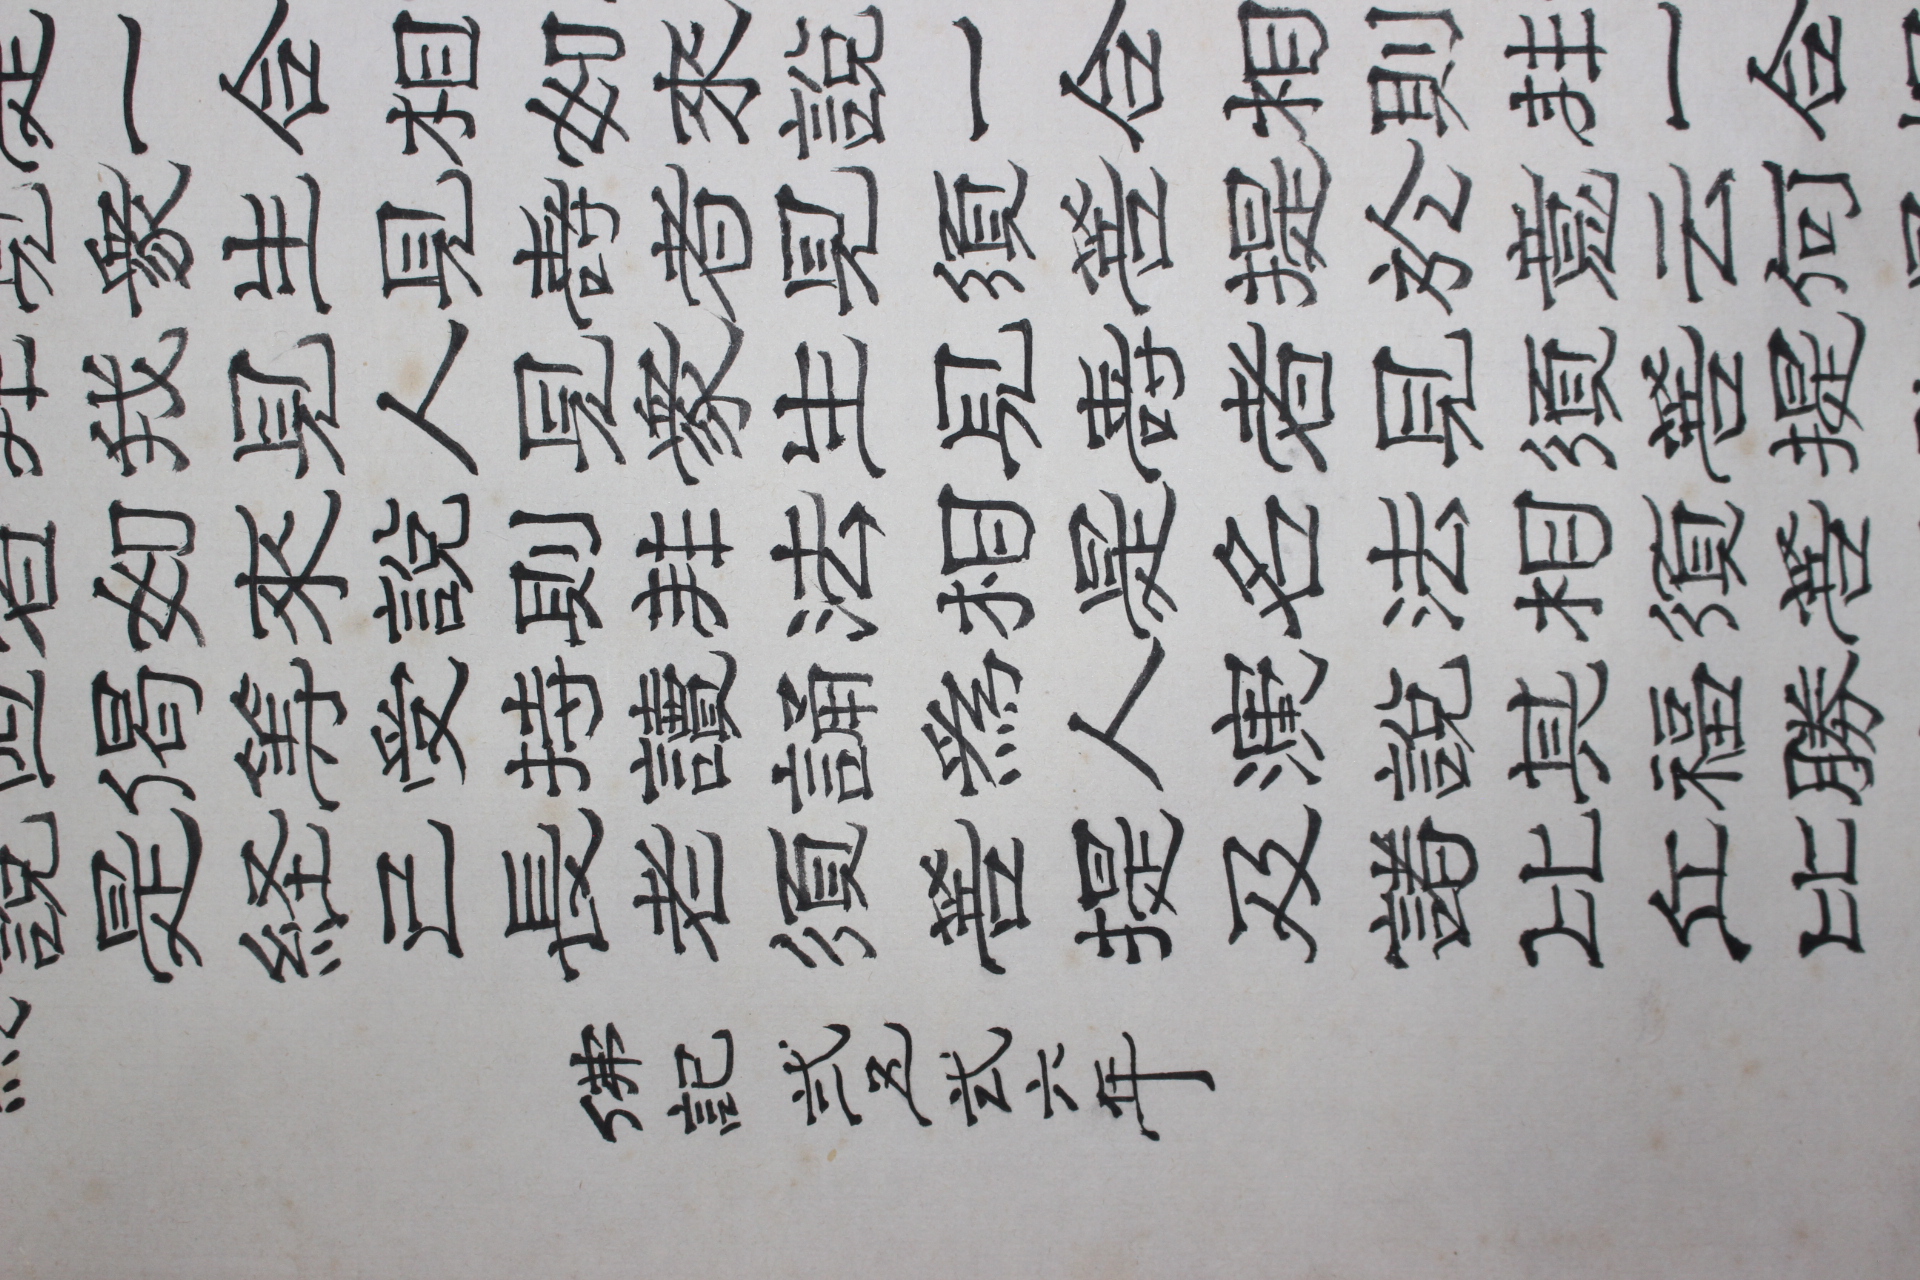 是一合相如來說一合相則非一合相
見衆生見壽者見須菩提於意云何是
非我見人見衆生見壽者見須菩提
者如來說則非法相是名法相須菩
偈等受持讀誦爲人演說其福勝
說是経已長老須菩提及諸比丘比
佛記 弍五弍六年